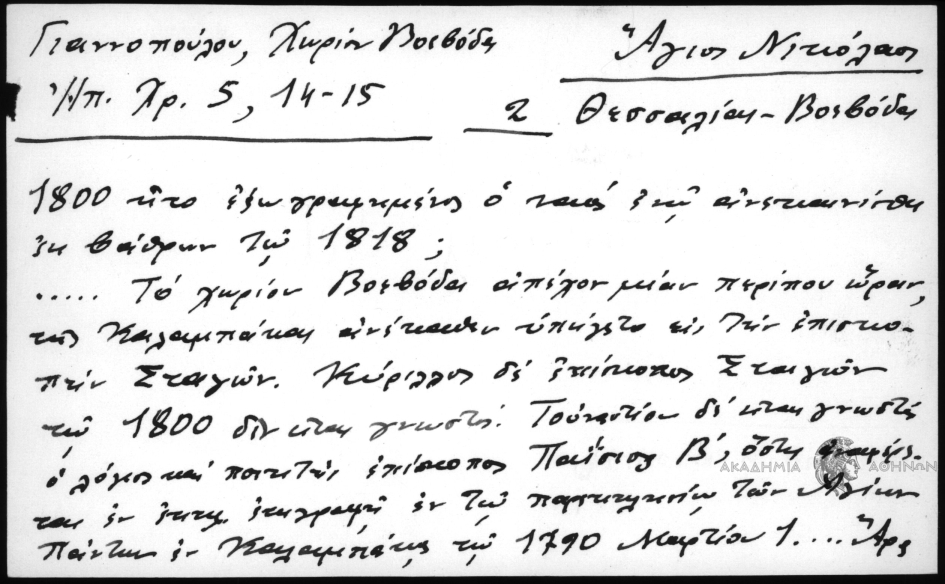 Γιαννοπούλου, Χωρίον Βοεβόδα
Ἠπ. Χρ. 5, 14-15
Ἅγιος Νικόλαος
2 Θεσσαλίας - Βοεβόδα
1800 ἦτο ἐζωγραφημένος ὁ ναός ἐνῷ ἀνεκαινίσθη
ἐκ βάθρων τῷ 1818;
..... Τό χωρίον Βοεβόδα ἀπέχον μίαν περίπου ὥραν,
τῆς Καλαμπάκας ἀνέκαθεν ὑπήγετο εἰς τήν ἐπισκο-
πήν Σταγῶν. Κύριλλος δέ ἐπίσκοπος Σταγῶν
τῷ 1800 δέν εἶναι γνωστός. Τοὐναντίον δέ εἶναι γνωστός
ὁ λόγιος καί ποιητής ἐπίσκοπος Παΐσιος Β', ὅστις ἀναφέρε-
ται ἐν ἐπιγραφῇ ἐν τῷ παρεκκλησίῳ τῶν Ἁγίων
Πάντων ἐν Καλαμπάκᾳ τῷ 1790 Μαρτίου 1. ... Ἆρα
ΑΚΑΔΗΜΙΑ ΑΘΗΝΩΝ